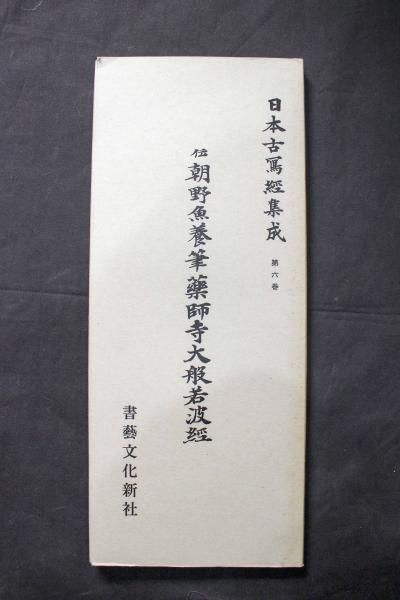 日本古寫經集成 第六巻
伝 朝野魚養筆藥師寺大般若波經
書藝文化新社